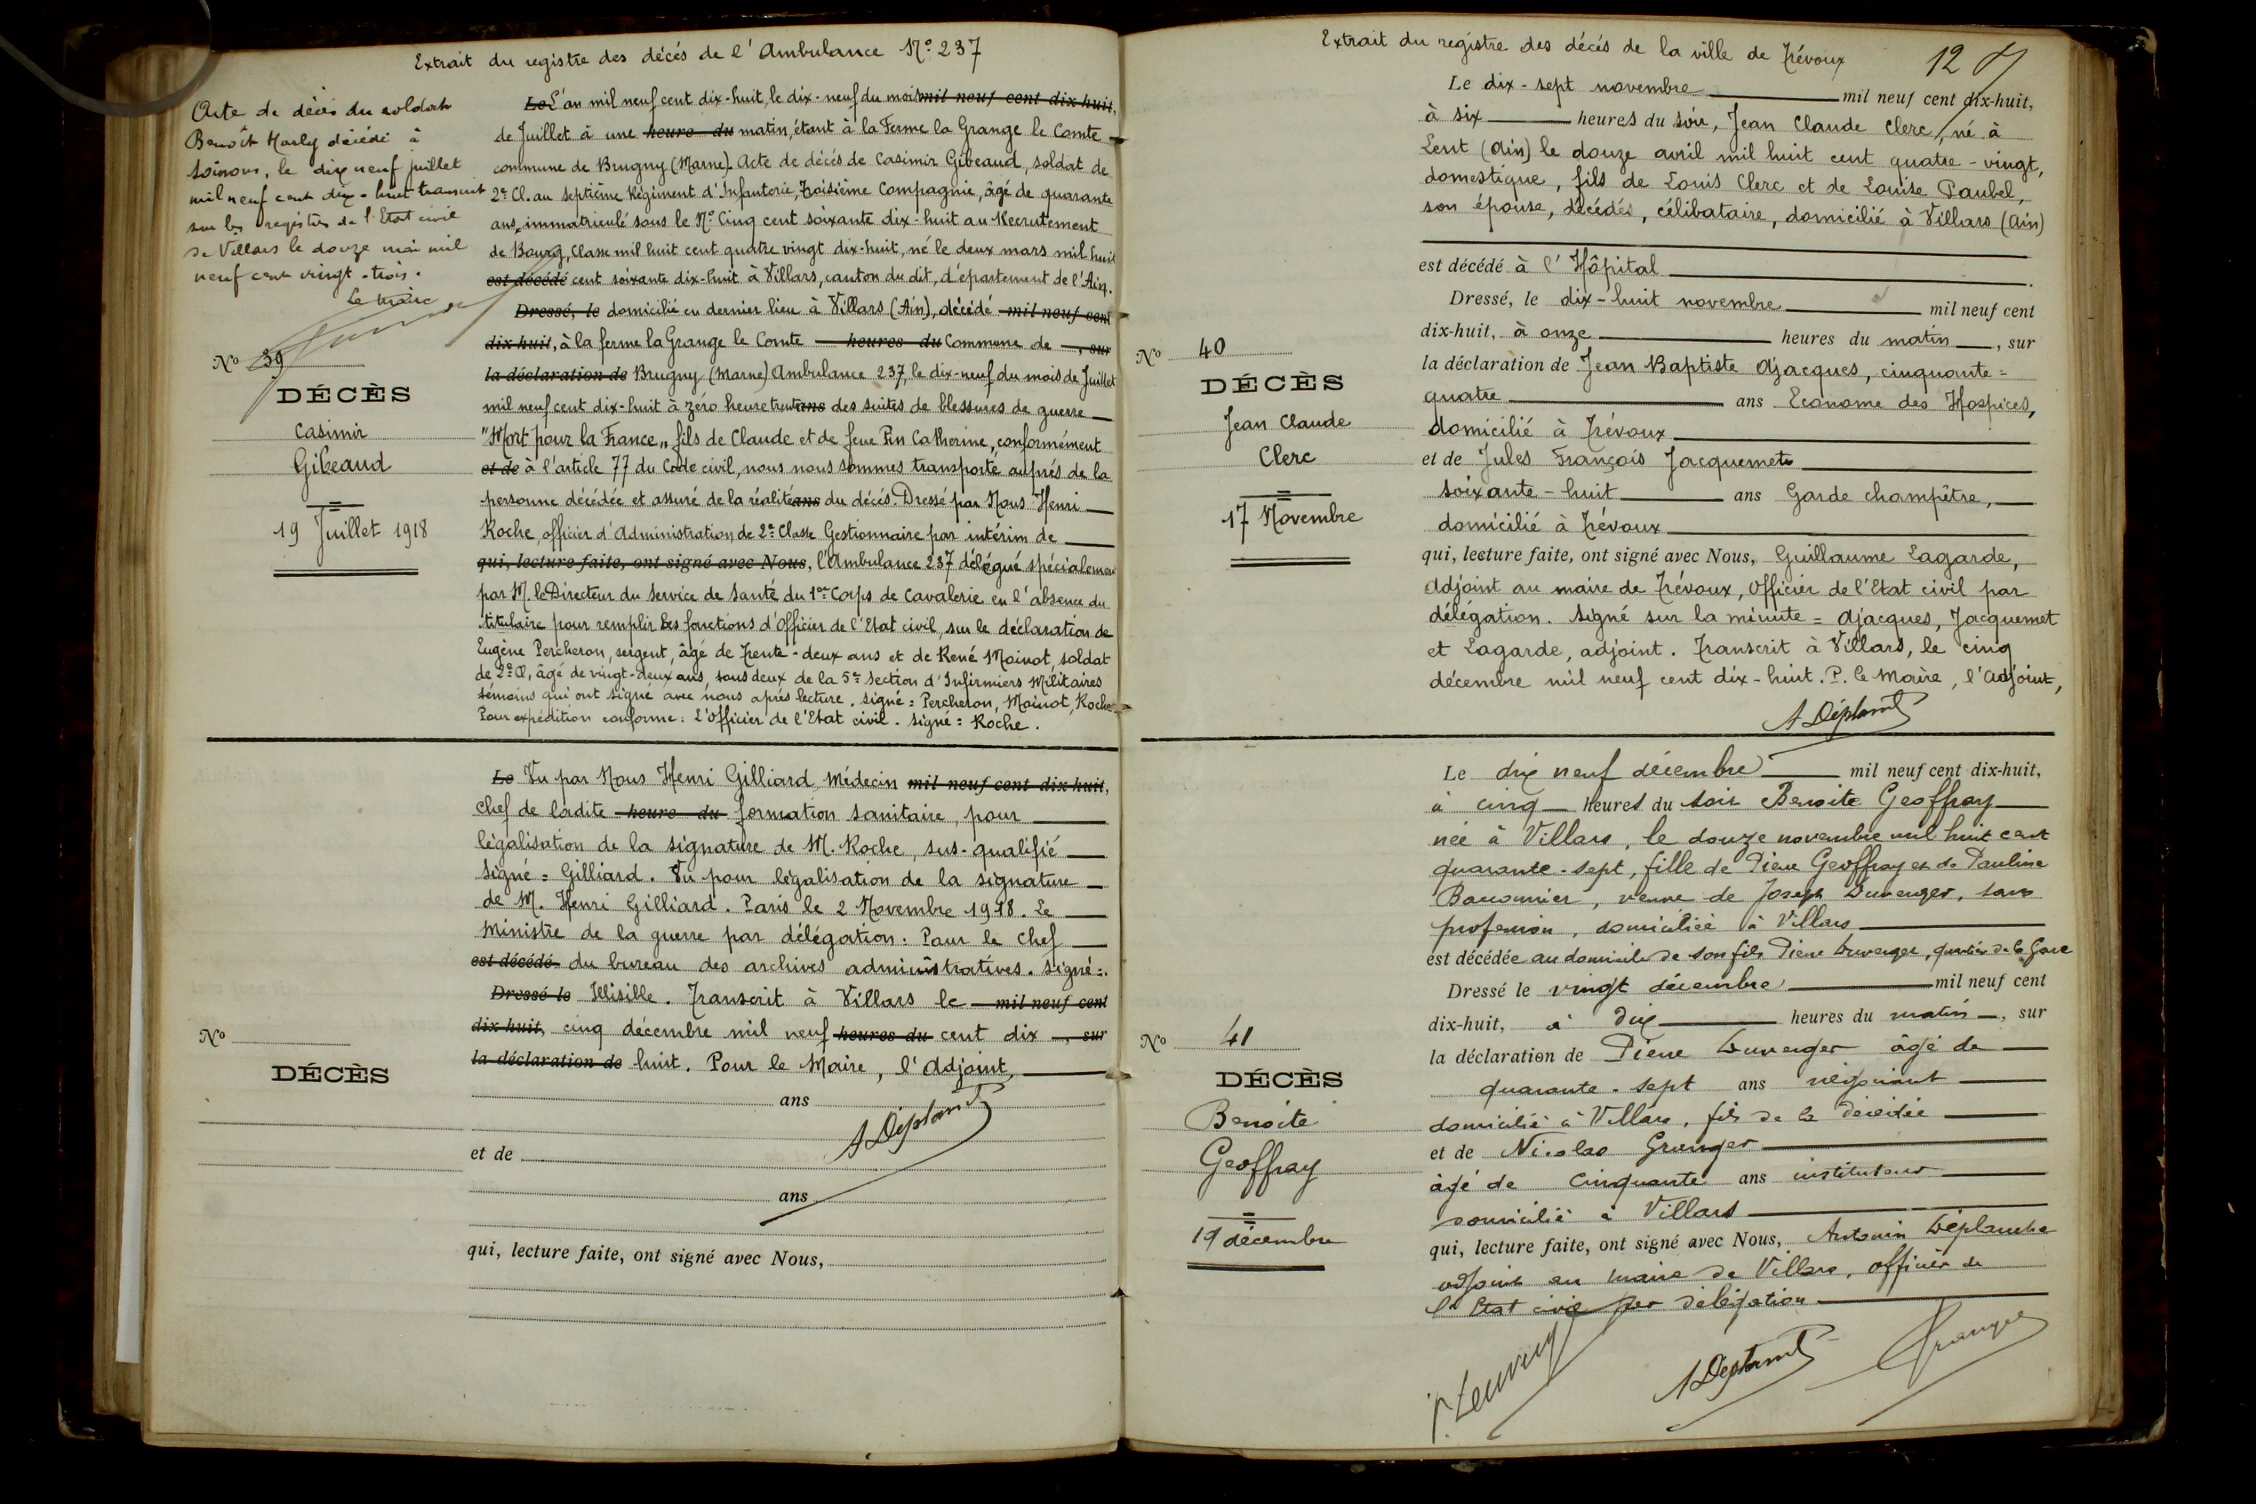 Extrait du registre des décés de l'Ambulance N° 237
Acte de décès du soldat
Benoît Marly décédé à
Soissons, le dix neuf juillet
mil neuf cent dix-huit transcrit
sur les registres de l'Etat civil
de Villars le douze mai mil
neuf cent vingt-trois.
Le Maire
N° 39
DÉCÈS
Casimir
Gibeaud
19 Juillet 1918
Le L'an mil neuf cent dix-huit, le dix-neuf du mois mil neuf cent dix-huit,
de Juillet à une heure du matin, étant à la Ferme la Grange le Comte
commune de Brugny (Marne). Acte de décés de Casimir Gibeaud, soldat de
2e Cl. au septième Régiment d'Infanterie, Troisième Compagnie, âgé de quarante
ans, immatriculé sous le N° Cinq cent soixante dix-huit au Recrutement
de Bourg, Classe mil huit cent quatre vingt dix-huit, né le deux mars mil huit
est décédé cent soixante dix-huit à Villars, canton du dit, département de l'Ain.
Dressé, le domicilié en dernier lieu à Villars (Ain), décédé mil neuf cent
dix-huit, à la ferme la Grange le Comte heures du Commune de , sur
la déclaration de Brugny (Marne) Ambulance 237, le dix-neuf du mois de Juillet
mil neuf cent dix-huit à zéro heure trente ans des suites de blessures de guerre
"Mort pour la France" fils de Claude et de feue Pin Catherine, conformément
et de à l'article 77 du Code civil, nous nous sommes transporté auprès de la
personne décédée et assuré de la réalité ans du décés. Dressé par Nous Henri
Roche, officier d'Administration de 2e Classe Gestionnaire par intérim de
qui, lecture faite, ont signé avec Nous, l'Ambulance 237 délégué spécialement
par M. le Directeur du Service de Santé du 1er Corps de Cavalerie en l'absence du
titulaire pour remplir les fonctions d'Officier de l'Etat civil, sur la déclaration de
Eugène Percheron, sergent, âgé de trente-deux ans et de René Moinot, soldat
de 2e Cl, âgé de vingt-deux ans, tous deux de la 5e Section d'Infirmiers Militaires
témoins qui ont signé avec nous après lecture. signé = Percheron, Moinot, Roche
Pour expédition conforme: L'officier de l'Etat civil. signé = Roche.
N°
DÉCÈS
Le Vu par Nous Henri Gilliard, Médecin mil neuf cent dix-huit,
chef de ladite heure du formation sanitaire, pour
légalisation de la signature de M. Roche, sus-qualifié
Signé = Gilliard. Vu pour légalisation de la signature
de M. Henri Gilliard. Paris le 2 Novembre 1918. Le
Ministre de la guerre par délégation: Pour le Chef
est décédé du bureau des archives administratives. Signé =.
Dressé le Illisible. Transcrit à Villars le mil neuf cent
dix-huit, cinq décembre mil neuf heures du cent dix , sur
la déclaration de huit. Pour le Maire, l'Adjoint,
ans
A Déplanche
et de
ans
qui, lecture faite, ont signé avec Nous,
Extrait du registre des décés de la ville de Trévoux
12
N° 40
DÉCÈS
Jean Claude
Clerc
17 Novembre
Le dix-sept novembre mil neuf cent dix-huit,
à six heures du soir, Jean Claude Clerc, né à
Lent (Ain) le douze avril mil huit cent quatre-vingt,
domestique, fils de Louis Clerc et de Louise Paubel,
son épouse, décédés, célibataire, domicilié à Villars (Ain)
est décédé à l'Hôpital
Dressé, le dix-huit novembre mil neuf cent
dix-huit, à onze heures du matin , sur
la déclaration de Jean Baptiste Ajacques, cinquante=
quatre ans Econome des Hospices,
domicilié à Trévoux
et de Jules François Jacquemet
soixante-huit ans Garde champêtre,
domicilié à Trévoux
qui, lecture faite, ont signé avec Nous, Guillaume Lagarde,
adjoint au maire de Trévoux, Officier de l'Etat civil par
délégation. Signé sur la minute = Ajacques, Jacquemet
et Lagarde, adjoint. Transcrit à Villars, le cinq
décembre mil neuf cent dix-huit. P. le Maire, l'Adjoint,
A Déplanche
N° 41
DÉCÈS
Benoite
Geoffray
19 décembre
Le dix neuf décembre mil neuf cent dix-huit,
à cinq heures du soir Benoite Geoffray
née à Villars, le douze novembre mil huit cent
quarante-sept, fille de Pierre Geoffray et de Pauline
veuve de Joseph Duverger, sans
profession, domiciliée à Villars
est décédée au domicile de son fils Pierre Duverger, quartier de la Gare
Dressé le vingt décembre mil neuf cent
dix-huit, à dix heures du matin , sur
la déclaration de Pierre Duverger âgé de
quarante-sept ans négociant
domicilié à Villars, fils de la décédée
et de Nicolas Granger
âgé de cinquante ans instituteur
domicilié à Villars
qui, lecture faite, ont signé avec Nous, Antonin Déplanche
adjoint au maire de Villars, officier de
l'Etat civil par délégation
A Déplanche
Granger